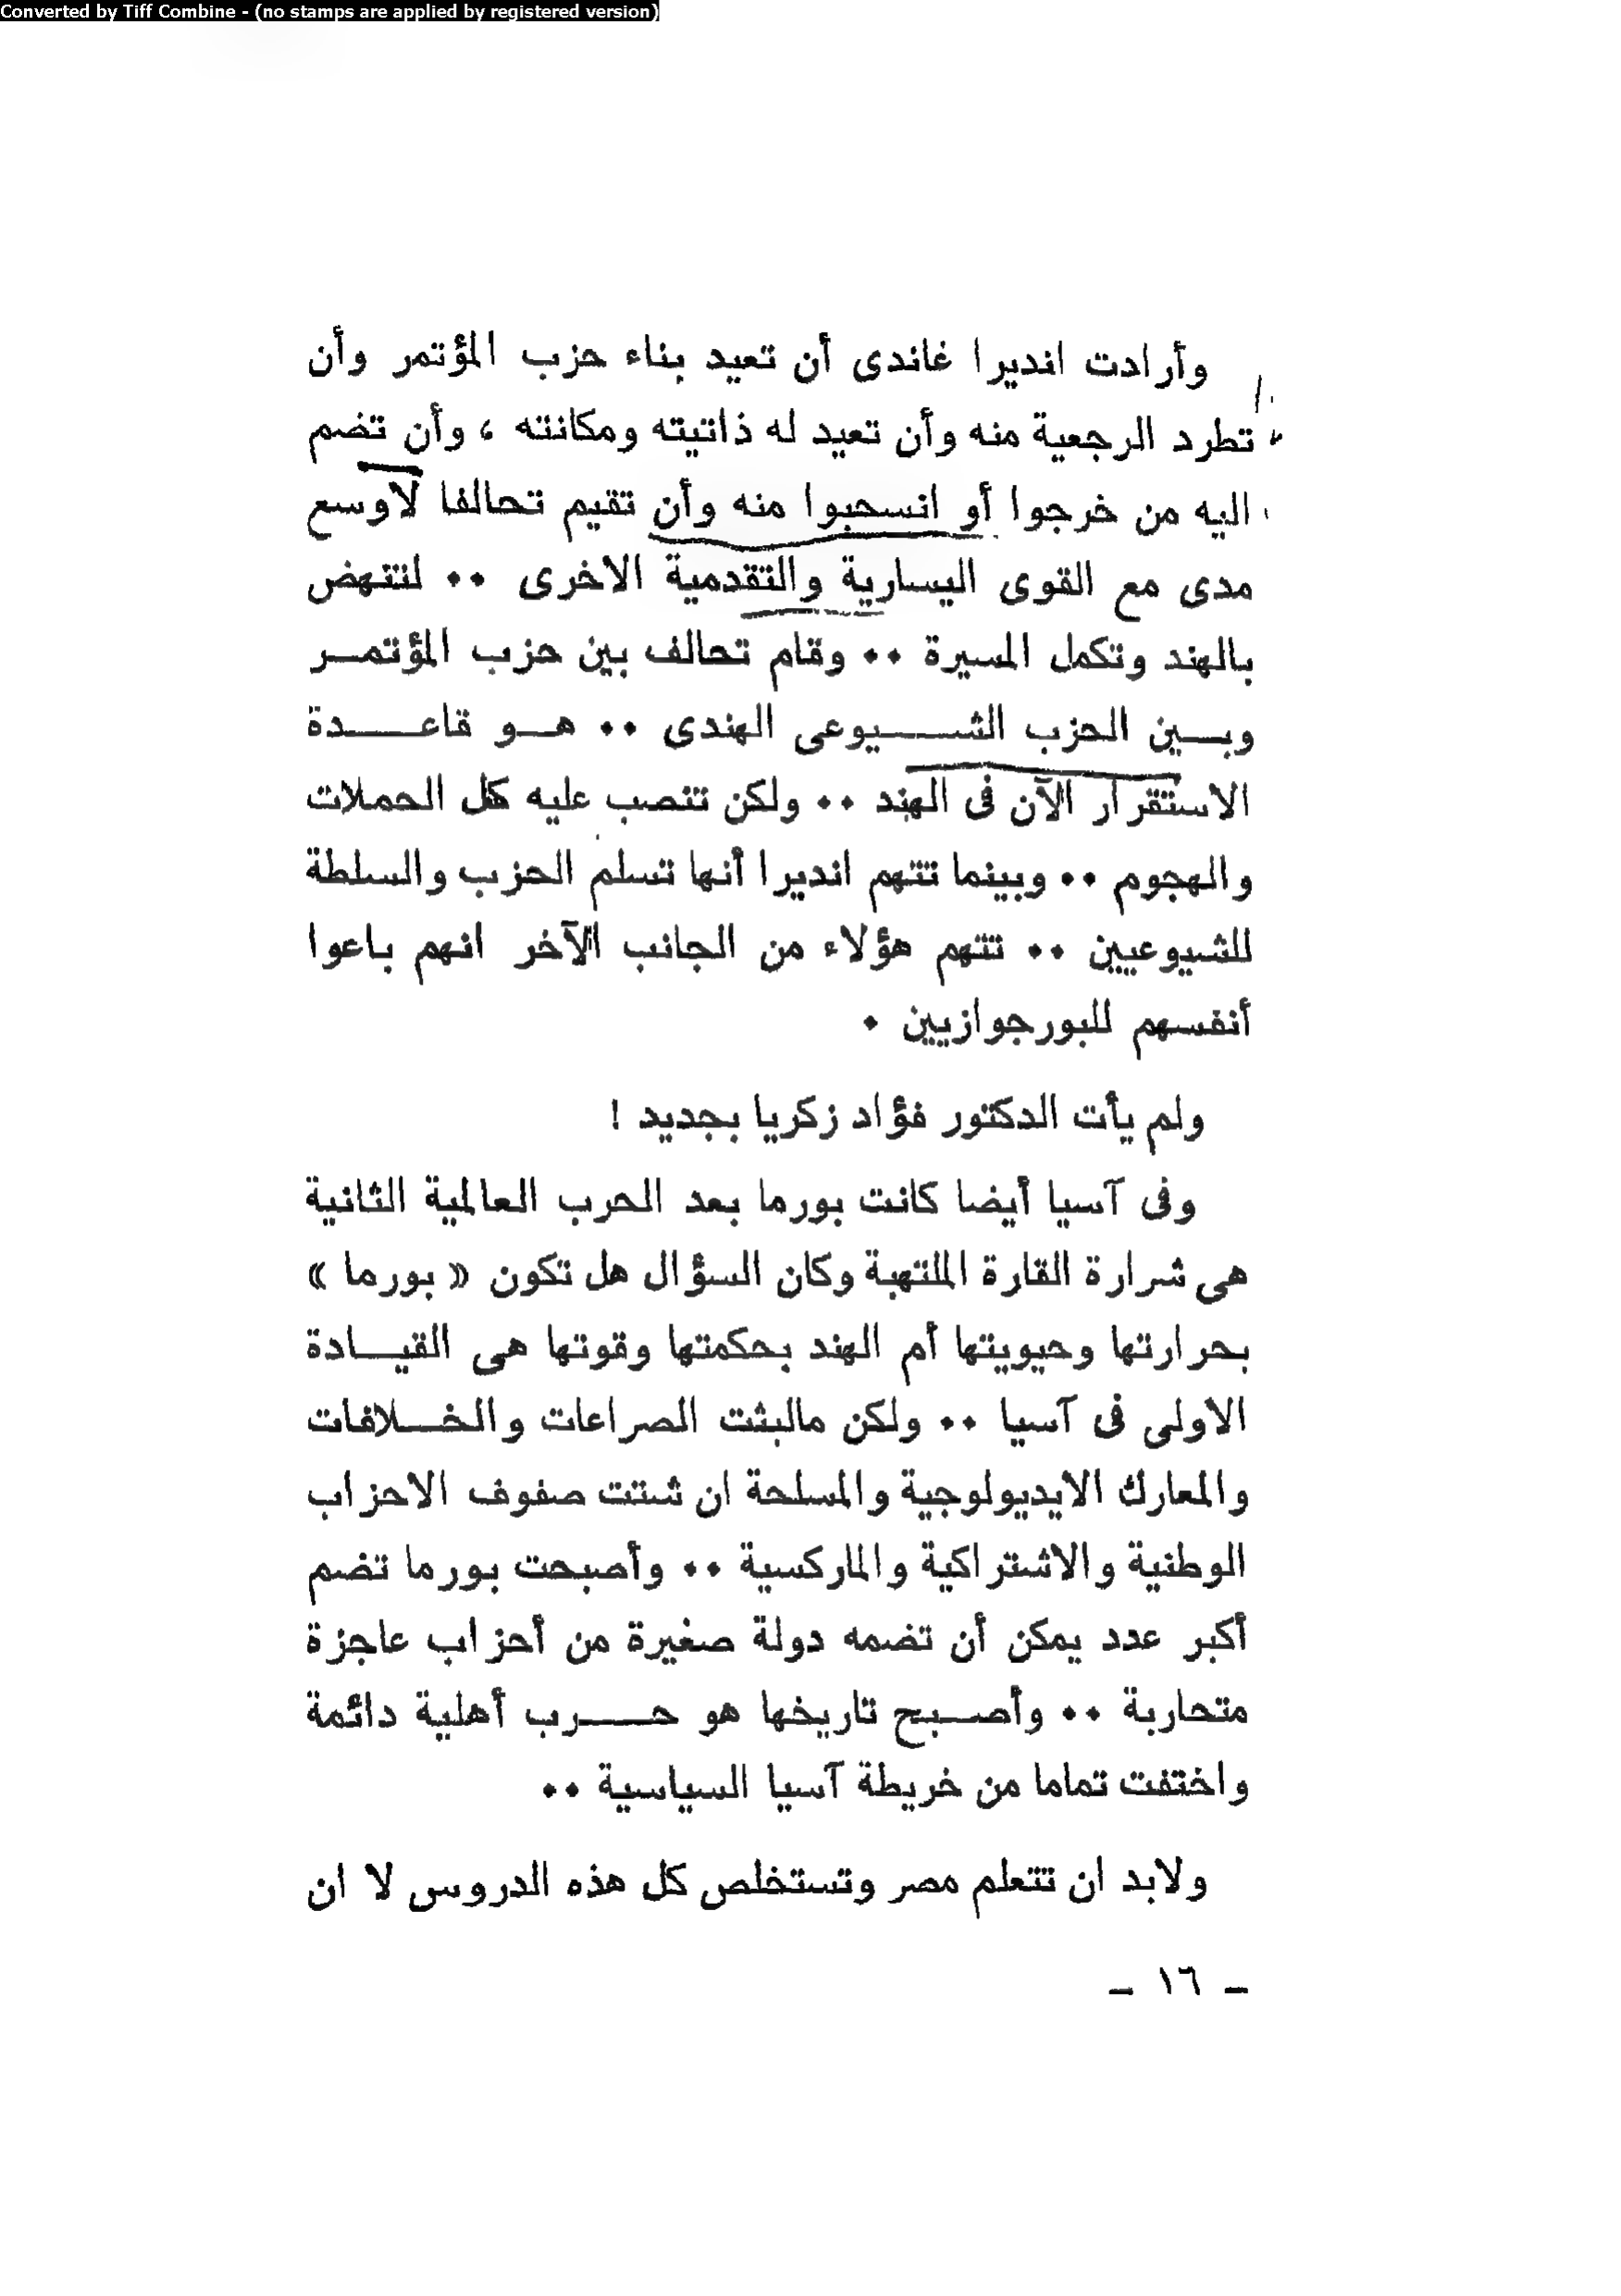 Converted by Tiff Combine - (no stamps are applied by registered version)
وأرادت انديرا غاندى أن تعيد بناء حزب المؤتمر وأن
تطرد الرجعية منه وأن تعيد له ذاتيته ومكانته ، وأن تضم
اليه من خرجوا أو انسحبوا منه وأن تقيم تحالفا لاوسع
مدى مع القوى اليسارية والتقدمية الاخرى ٠٠ لتنهض
بالهند وتكمل المسيرة ٠٠ وقام تحالف بين حزب المؤتمر
وبين الحزب الشيوعى الهندى ٠٠ هو قاعدة
الاستقرار الآن فى الهند ٠٠ ولكن تنصب عليه كل الحملات
والهجوم ٠٠ وبينما تتهم انديرا أنها تسلم الحزب والسلطة
للشيوعيين ٠٠ تتهم هؤلاء من الجانب الآخر انهم باعوا
أنفسهم للبورجوازيين ٠
ولم يأت الدكتور فؤاد زكريا بجديد !
وفى آسيا أيضا كانت بورما بعد الحرب العالمية الثانية
هى شرارة القارة الملتهبة وكان السؤال هل تكون « بورما »
بحرارتها وحيويتها أم الهند بحكمتها وقوتها هى القيادة
الاولى فى آسيا ٠٠ ولكن مالبثت الصراعات والخلافات
والمعارك الايديولوجية والمسلحة ان شتتت صفوف الاحزاب
الوطنية والاشتراكية والماركسية ٠٠ وأصبحت بورما تضم
أكبر عدد يمكن أن تضمه دولة صغيرة من أحزاب عاجزة
متحاربة ٠٠ وأصبح تاريخها هو حرب أهلية دائمة
واختفت تماما من خريطة آسيا السياسية ٠٠
ولابد ان تتعلم مصر وتستخلص كل هذه الدروس لا ان
– ١٦ –